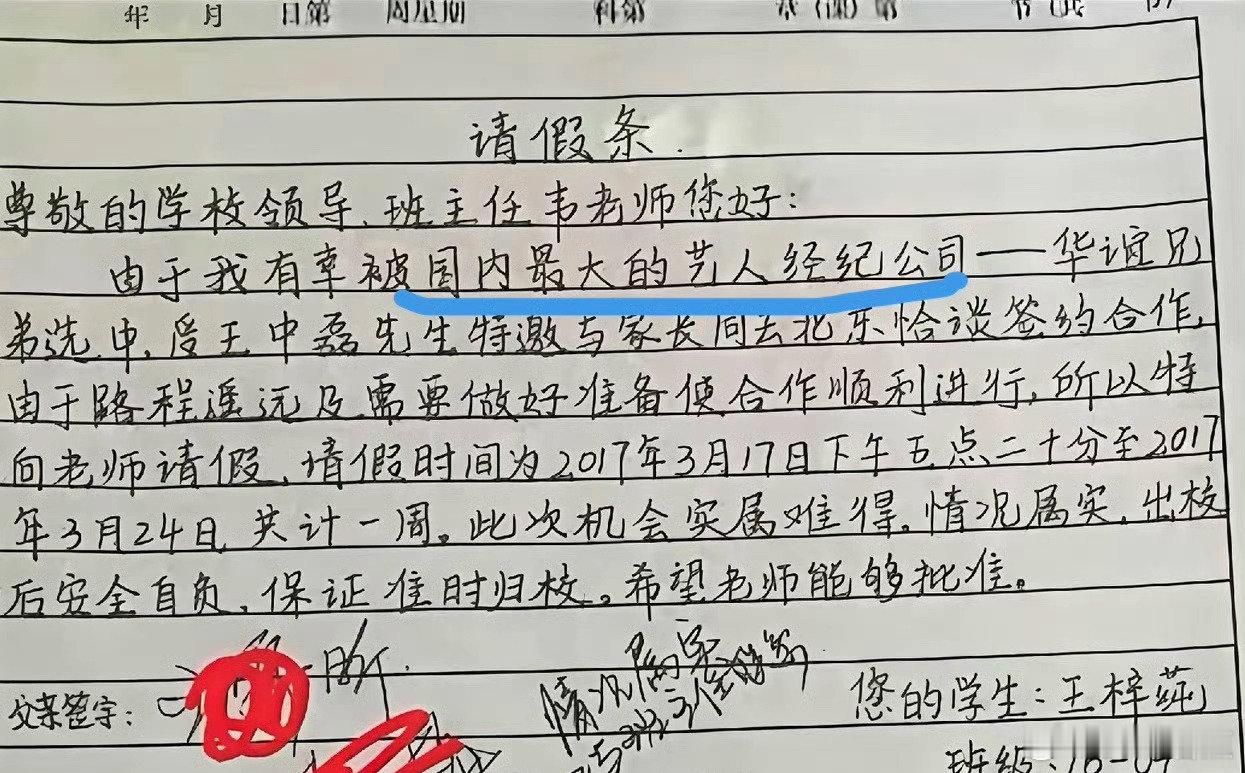 年 月 日第 周星期 科第 章(课)第
请假条.
尊敬的学校领导、班主任韦老师您好:
由于我有幸被国内最大的艺人经纪公司——华谊兄
弟选中,受王中磊先生特邀与家长同去北京恰谈签约合作,
由于路程遥远及需要做好准备使合作顺利进行,所以特
向老师请假,请假时间为2017年3月17日下午五点二十分至2017
年3月24日,共计一周。此次机会实属难得,情况属实,出校
后安全自负,保证准时归校。希望老师能够批准。
父亲签字:
情况属实
您的学生:王梓莼
班级:16-04